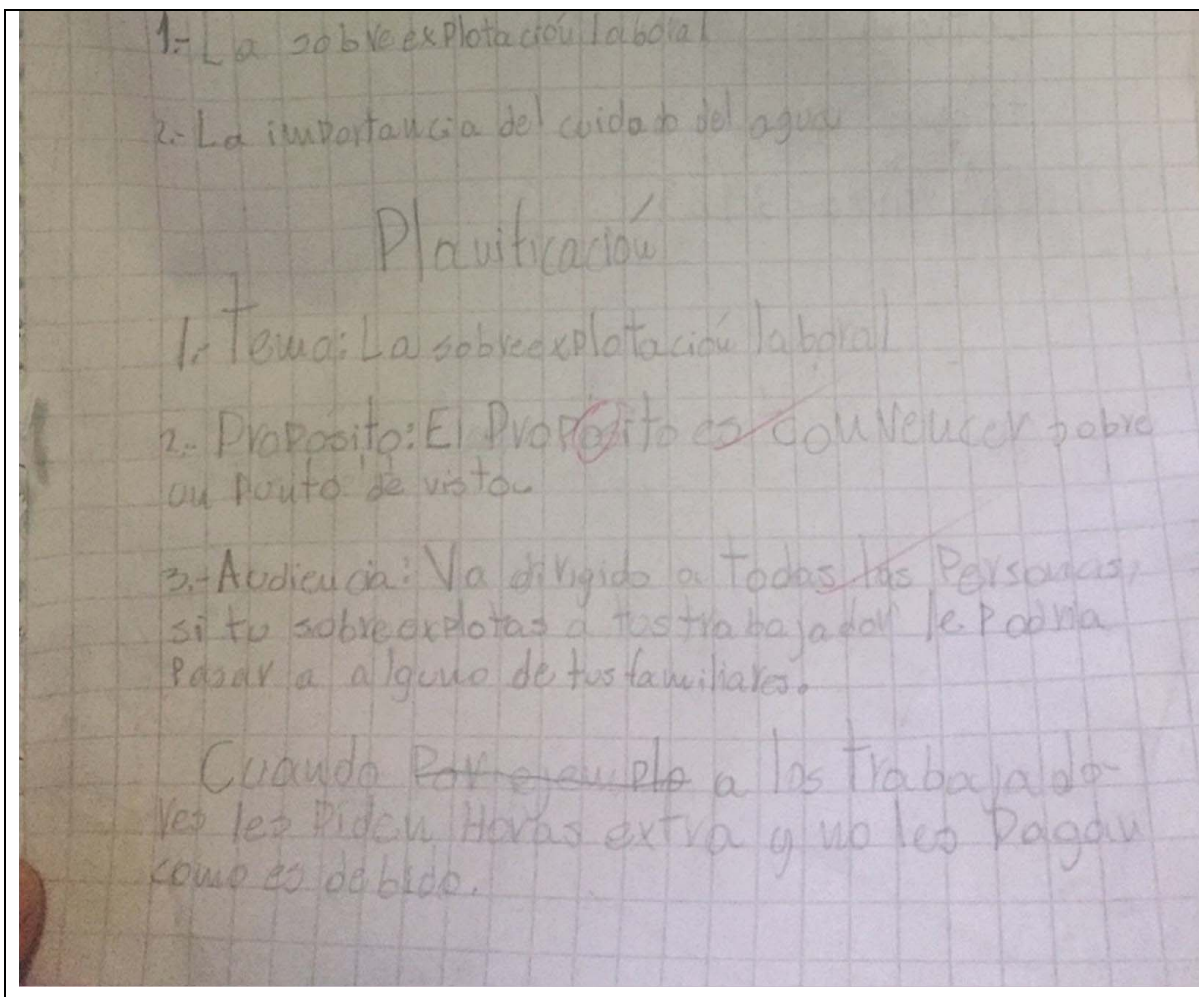 1.- La sobreexplotación laboral
2.- La importancia del cuidado del agua
Planificación
1.- Tema: La sobreexplotación laboral
2.- Proposito: El Proposito es convencer sobre
un punto de vista
3.- Audiencia: Va dirigido a Todas las Personas,
si tu sobreexplotas a tus trabajador le Podria
Pasar a alguno de tus familiares.
Cuando Por ejemplo a los Trabajado-
res les Piden Horas extra y no les Pagan
como es debido.